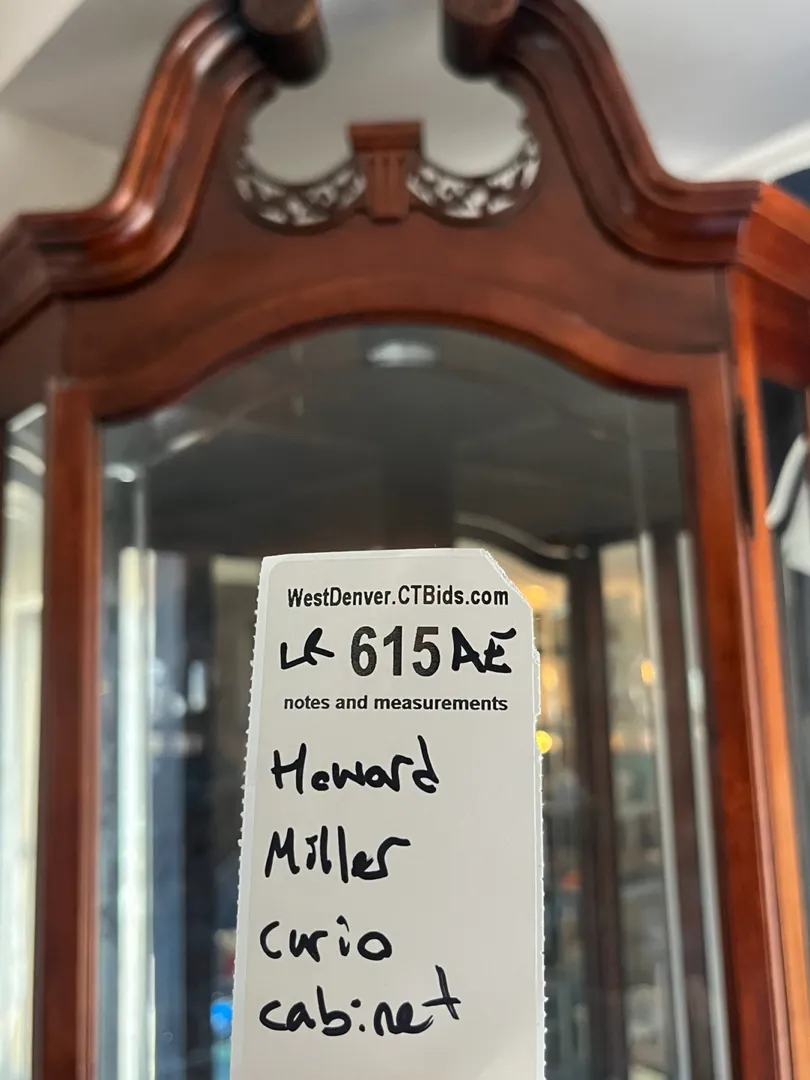 WestDenver.CTBids.com
LR 615 AE
notes and measurements
Howard
Miller
curio
cabinet